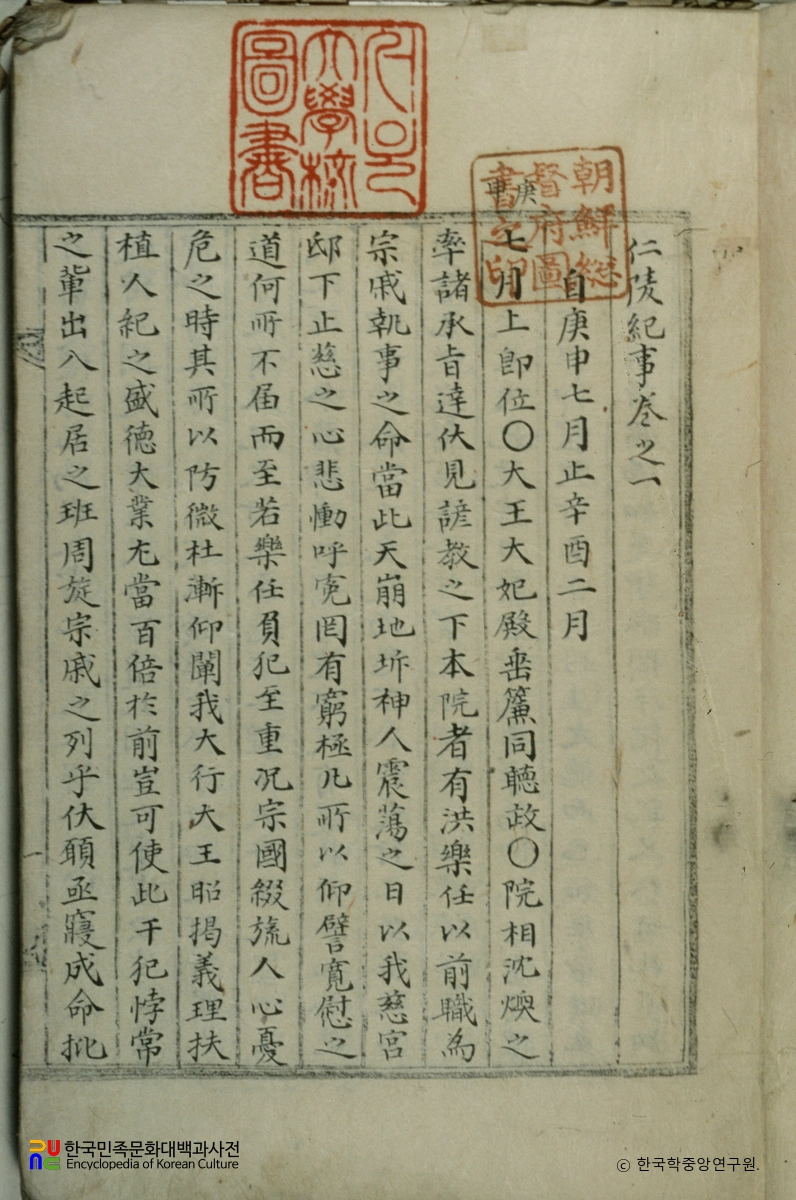 서울
大學校
圖書
朝鮮總
督府圖
書之印
仁陵紀事卷之一
自庚申七月止辛酉二月
庚申
七月上卽位〇大王大妃殿垂簾同聽政〇院相沈煥之
率諸承旨達伏見諺敎之下本院者有洪樂任以前職爲
宗戚執事之命當此天崩地坼神人震蕩之日以我慈宮
邸下止慈之心悲慟呼寃罔有窮極凡所以仰譬寬慰之
道何所不届而至若樂任負犯至重况宗國綴旒人心憂
危之時其所以防微杜漸仰闡我大行大王昭揭義理扶
植人紀之盛德大業尤當百倍於前豈可使此干犯悖常
之輩出入起居之班周旋宗戚之列乎伏願亟寢成命批
한국민족문화대백과사전
Encyclopedia of Korean Culture
© 한국학중앙연구원.